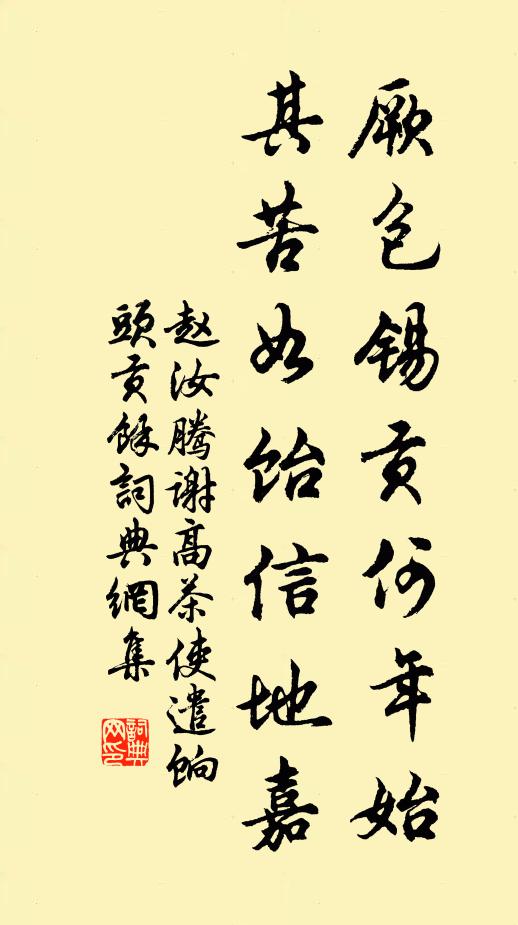 厥包锡贡何年始
其苦如饴信地嘉
赵汝腾谢高茶使遣饷
頭贡餘詞典網集
詞典
网印